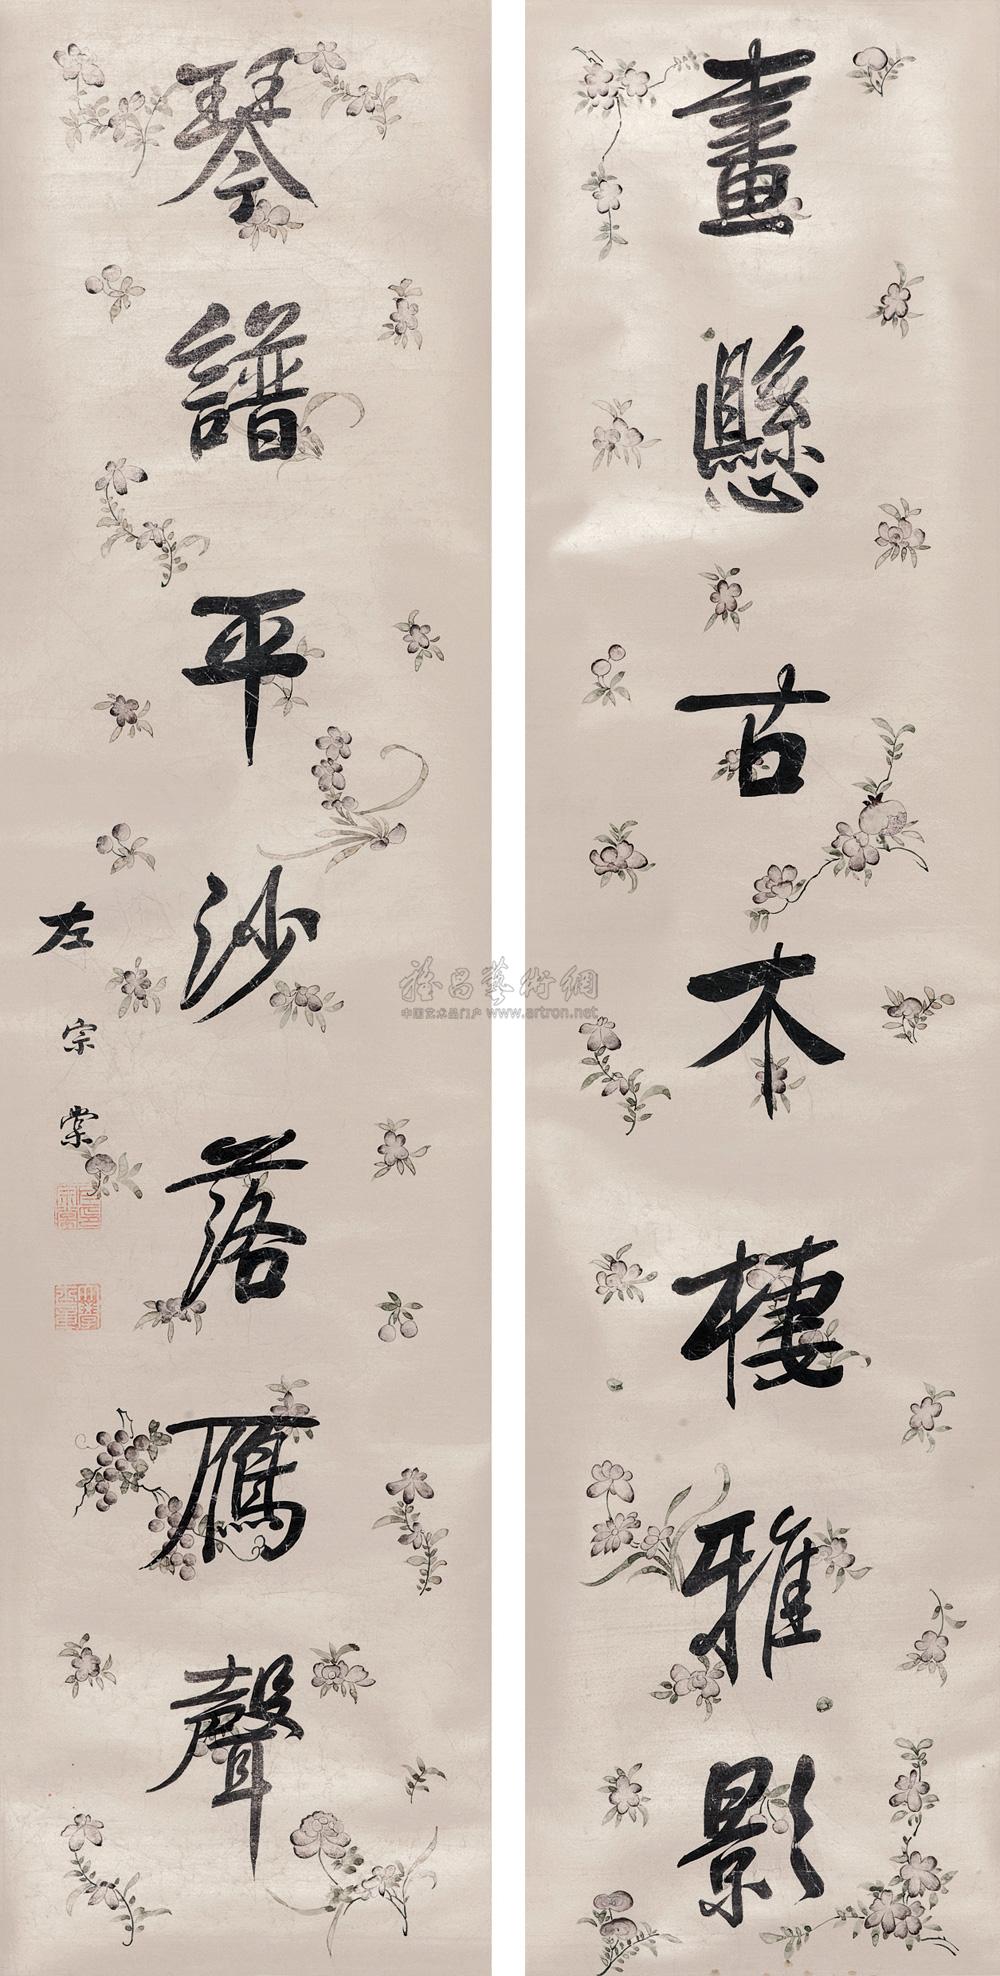 畫懸古木棲雅影
琴譜平沙落鴈聲
左宗棠
雅昌藝術網
中国艺术品门户 www.artron.net